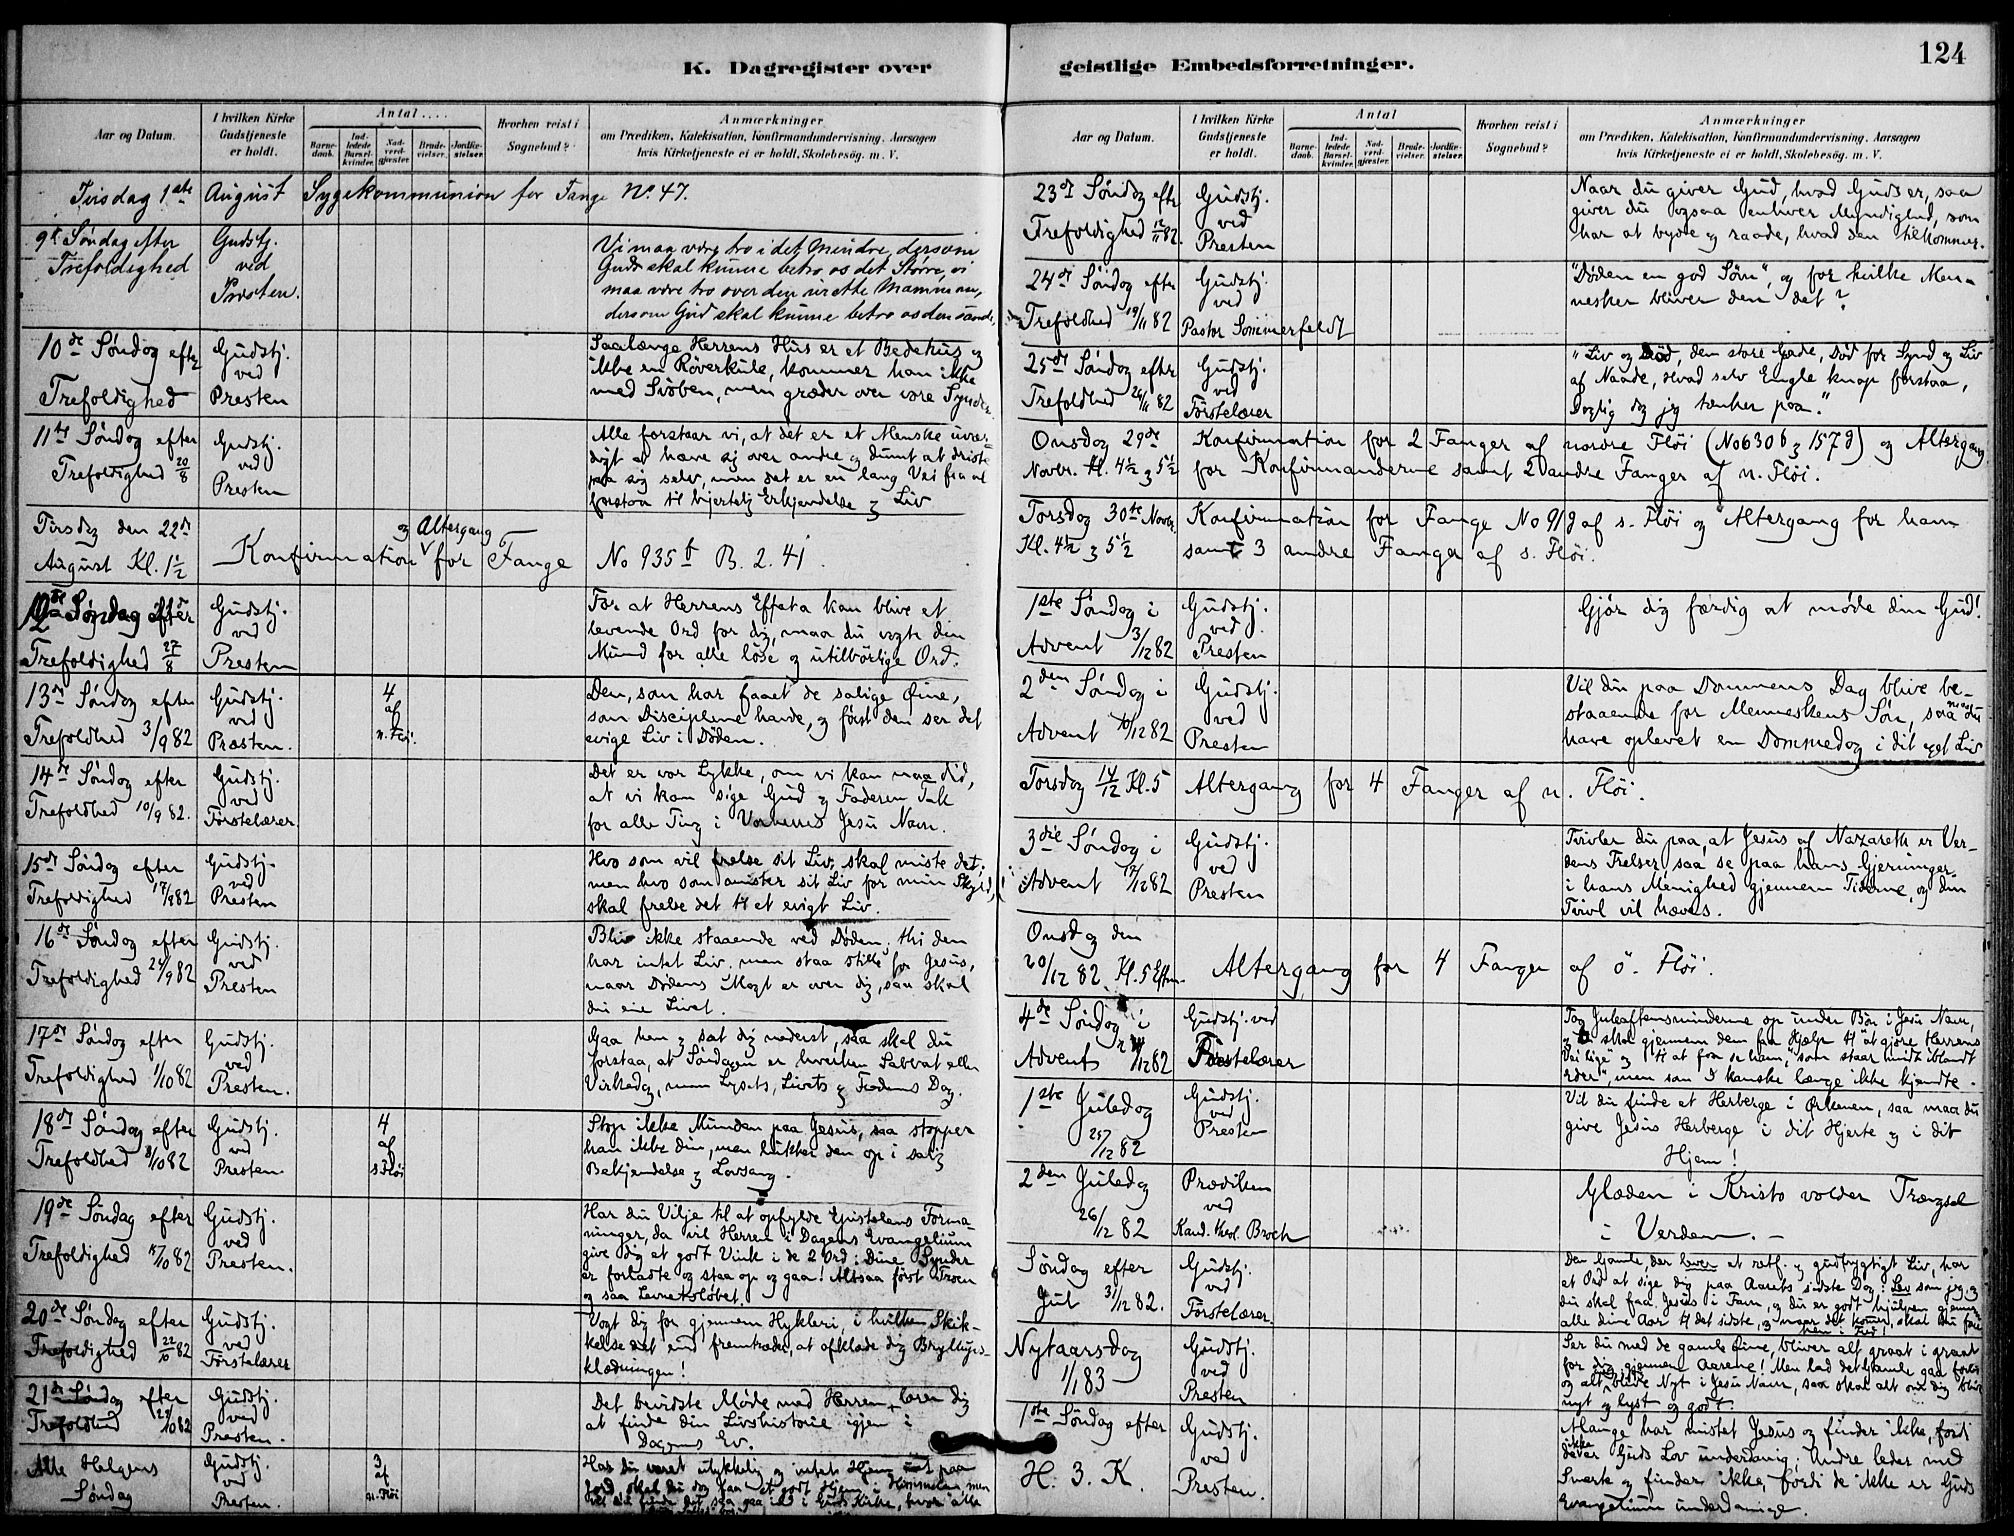 K. Dagregister over
Aar og Datum.
I hvilken Kirke
Gudstjeneste
er holdt.
Antal ....
Barne-
daab.
Ind-
ledede
Barsel-
kvinder.
Nad-
verd-
gjæster.
Brude-
vielser.
Jordfæ-
stelser.
Hvorhen reist i
Sognebud?
Anmærkninger
om Prædiken, Katekisation, Konfirmandundervisning, Aarsagen
hvis Kirketjeneste ei er holdt, Skolebesøg. m. V.
Tirsdag 1ste August Sygekommunion for Fange No. 47.
9de Søndag efter
Trefoldighed
Gudstj.
ved
Presten.
Vi maa være tro i det mindre, dersom
Gud skal kunne betro os det Større, vi
maa være tro over den urette Mammon,
dersom Gud skal kunne betro os den sande.
10de Søndag efter
Trefoldighed
Gudstj.
ved
Presten
Saalænge Herrens Hus er et Bedehus og
ikke en Røverkule, kommer han ikke
med Svøben, men græder over vore Synder.
11te Søndag efter
Trefoldighed 20/8
Gudstj.
ved
Presten
Alle forstaar vi, at det er et Menske uvær-
digt at hæve sig over andre og dumt at driste
paa sig selv, men det er en lang Vei fra at
forstaa til hjertelig Erkjendelse og Liv
Tirsdag den 22de
August Kl. 1½
og Altergang
Konfirmation for Fange No 935b B. 2. 41.
12te Søndag efter
Trefoldighed 27/8
Gudstj.
ved
Presten
For at Herrens Effata kan blive et
levende Ord for dig, maa du vogte din
Mund for alle løse og utilbørlige Ord.
13de Søndag efter
Trefoldhed 3/9 82
Gudstj.
ved
Præsten.
4
af
n. Fløi.
Den, som har faaet de salige Øine,
som Disciplene havde, og først den ser det
evige Liv i Døden.
14de Søndag efter
Trefoldhed 10/9 82.
Gudstj.
ved
Førstelærer
Det er vor Lykke, om vi kan naa did,
at vi kan sige Gud og Faderen Tak
for alle Ting i Vorherres Jesu Navn.
15de Søndag efter
Trefoldighed 17/9 82
Gudstj.
ved
Presten
Hvo som vil frelse sit Liv, skal miste det;
men hvo som mister sit Liv for min Skyld,
skal frelse det til et evigt Liv.
16de Søndag efter
Trefoldighed 24/9 82
Gudstj.
ved
Presten
Bliv ikke staaende ved Døden, thi den
har intet Liv, men staa stille for Jesus,
naar Dødens Magt er over dig, saa skal
du eie Livet.
17de Søndag efter
Trefoldighed 1/10 82
Gudstj.
ved
Presten.
Gaa hen og sæt dig nederst, saa skal du
forstaa, at Søndagen er hverken Sabbat eller
Virkedag, men Lysets, Livets og Fredens Dag.
18de Søndag efter
Trefoldhed 8/10 82
Gudstj.
ved
Presten
4
af
s. Fløi
Stop ikke Munden paa Jesus, saa stopper
han ikke din, men lukker den op i salig
Bekjendelse og Lovsang.
19de Søndag efter
Trefoldighed 15/10 82
Gudstj.
ved
Presten.
Har du Vilje til at opfylde Epistelens Forma-
ninger, da vil Herren i Dagens Evangelium
give dig et godt Vink i de 2 Ord: Dine Synder
er forladte og staa op og gaa! Altsaa først Troen
og saa Levnetsløbet.
20de Søndag efter
Trefoldighed 22/10 82
Gudstj.
ved
Førstelærer
Vogt dig for gjennem Hykleri, i hvilken Skik-
kelse det end fremtræder, at afklæde dig Bryllups-
klædningen!
21de Søndag efter
Trefoldhed 29/10 82
Gudstj.
ved
Presten.
Det bevidste Møde med Herren lærer dig
at finde din Livshistorie igjen i
Dagens Ev.
Alle Helgens
Søndag
Gudstj.
ved
Presten.
3
af
n. Fløi
Har du været ulykkelig og intet Hjem havt paa
Jord, skal du dog faa et godt Hjem i Himmelen, men
vil du finde det saa gaa ind i Guds Kirke, hvor alle
geistlige Embedsforretninger.
124
Aar og Datum.
I hvilken Kirke
Gudstjeneste
er holdt.
Antal
Barne-
daab.
Ind-
ledede
Barsel-
kvinder.
Nad-
verd-
gjæster.
Brude-
vielser.
Jordfæ-
stelser.
Hvorhen reist i
Sognebud?
Anmærkninger
om Prædiken, Katekisation, Konfirmandundervisning, Aarsagen
hvis Kirketjeneste ei er holdt, Skolebesøg. m. V.
23de Søndag efter
Trefoldighed 12/11 82.
Gudstj.
ved
Presten
Naar du giver Gud, hvad Guds er, saa
giver du ogsaa enhver Myndighed, som
har at byde og raade, hvad den tilkommer.
24de Søndag efter
Trefoldhed 19/11 82
Gudstj.
ved
Pastor Sommerfeldt
"Døden en god Søvn", og for hvilke Men-
nesker bliver den det?
25de Søndag efter
Trefoldhed 26/11 82
Gudstj.
ved
Førstelærer
"Liv og Død, den store Gaade, Død for Synd og Liv
af Naade, Hvad selv Engle knap forstaa,
Daglig dog jeg tænker paa."
Onsdag 29de
Novbr. Kl. 4½ og 5½
Konfirmation for 2 Fanger af nordre Fløi (No 630b og 157g) og Altergang
for Konfirmanderne samt 2 andre Fanger af n. Fløi.
Torsdag 30te Novbr.
Kl. 4½ og 5½
Konfirmation for Fange No 91g af s. Fløi og Altergang for ham
samt 3 andre Fanger af s. Fløi.
1ste Søndag i
Advent 3/12 82
Gudstj.
ved
Presten
Gjør dig færdig at møde din Gud!
2den Søndag i
Advent 10/12 82
Gudstj.
ved
Presten
Vil du paa Dommens Dag blive be-
staaende for Menneskens Søn, saa maa du
have oplevet en Dommedag i dit eget Liv
Torsdag 14/12 Kl. 5
Altergang for 4 Fanger af n. Fløi.
3die Søndag i
Advent 17/12 82
Gudstj.
ved
Presten
Tvivler du paa, at Jesus af Nazareth er Ver-
dens Frelser, saa se paa hans Gjerninger
i hans Menighed gjennem Tiderne, og din
Tvivl vil hæves.
Onsdag den
20/12 82 Kl. 5 Efm.
Altergang for 4 Fanger af ö. Fløi.
4de Søndag i
Advent 24/12 82
Gudstj. ved
Førstelærer
Tag Juleaftensminderne op under Bøn i Jesu Navn,
og du skal gjennem dem faa Hjælp til "at gjøre Herrens
Vei lige" og til at faa se ham, "som staar midt iblandt
Eder", men som I kanske længe ikke kjendte.
1ste Juledag
25/12 82
Gudstj.
ved
Presten
Vil du finde et Herberge i Ørkenen, saa maa du
give Jesus Herberge i dit Hjerte og i dit
Hjem!
2den Juledag
26/12 82
Prædiken
ved
Kand. theol. Broch
Glæden i Kristo volder Trængsel
i Verden. -
Søndag efter
Jul 31/12 82.
Gudstj.
ved
Førstelærer
Den Gamle, der lever et retf. og gudfrygtigt Liv, har
et Ord at sige dig paa Aarets sidste Dag: Lev som jeg, og
du skal faa Jesus i Favn, og du er godt hjulpen gjennem
alle dine Aar til det sidste, og naar det kommer, skal du fare
hen i Fred!
Nytaarsdag
1/1 83
Gudstj.
ved
Presten
Ser du med de gamle Øine, bliver alt graat i graat
for dig gjennem Aarene! Men lad det Gamle gaa forbi
og alt blive Nyt i Jesu Navn, saa skal alt om dig blive
nyt og lyst og godt.
1ste Søndag efter
H. 3. K.
Gudstj.
ved
Presten.
Mange har mistet Jesus og finder ikke, fordi
de ikke er Guds Lov underdanig; Andre leder med
Smerte og finder ikke, fordi de ikke er Guds
Evangelium underdanige.